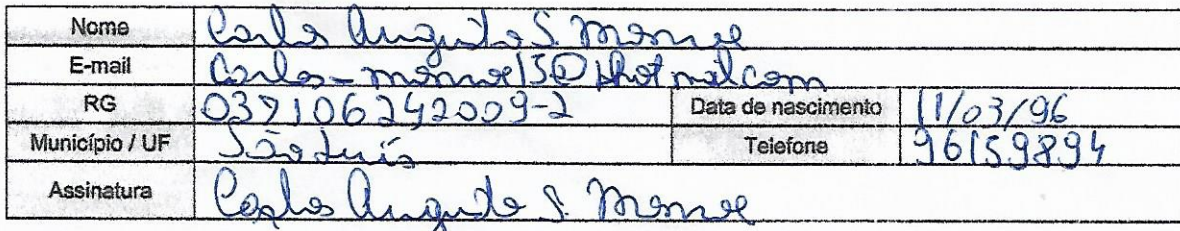 Nome Carlos Augusto S. Monroe
E-mail Carlos-monroe15@hotmail.com
RG 039106242009-2 Data de nascimento 11/03/96
Município / UF São Luís Telefone 96159894
Assinatura Carlos Augusto S. Monroe